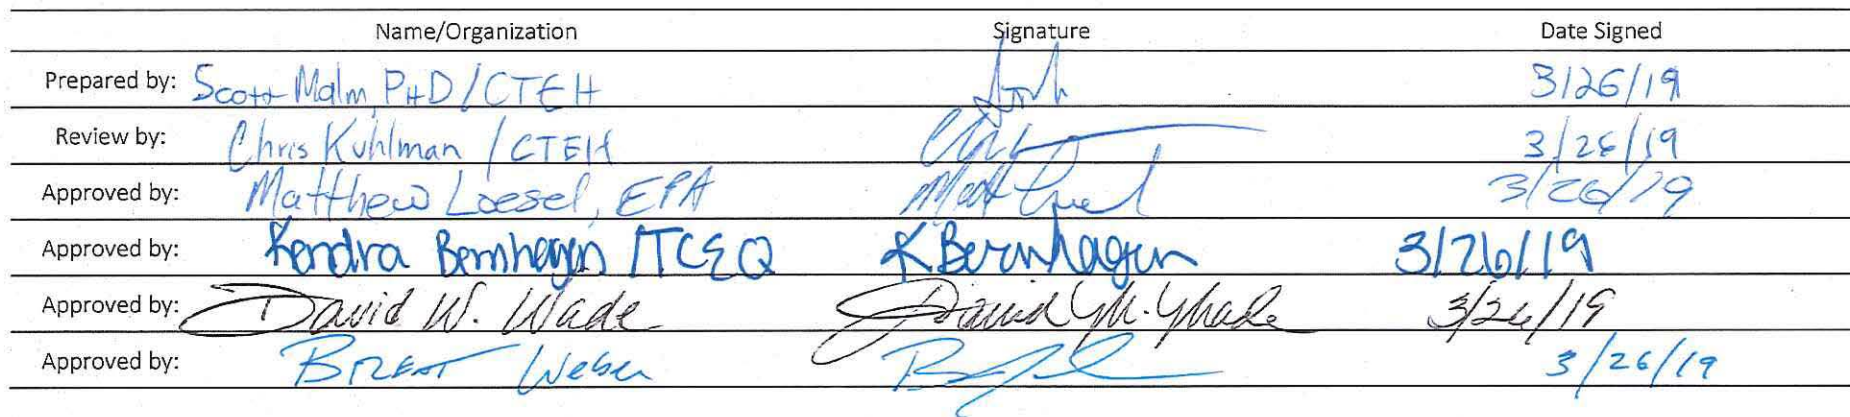 Name/Organization Signature Date Signed
Prepared by: Scott Malm, PHD/CTEH 3/26/19
Review by: Chris Kuhlman / CTEH 3/26/19
Approved by: Matthew Loesel, EPA 3/26/19
Approved by: Kendra Bernhagen /TCEQ K Bernhagen 3/26/19
Approved by: David W. Wade David W. Wade 3/26/19
Approved by: Brent Weber 3/26/19